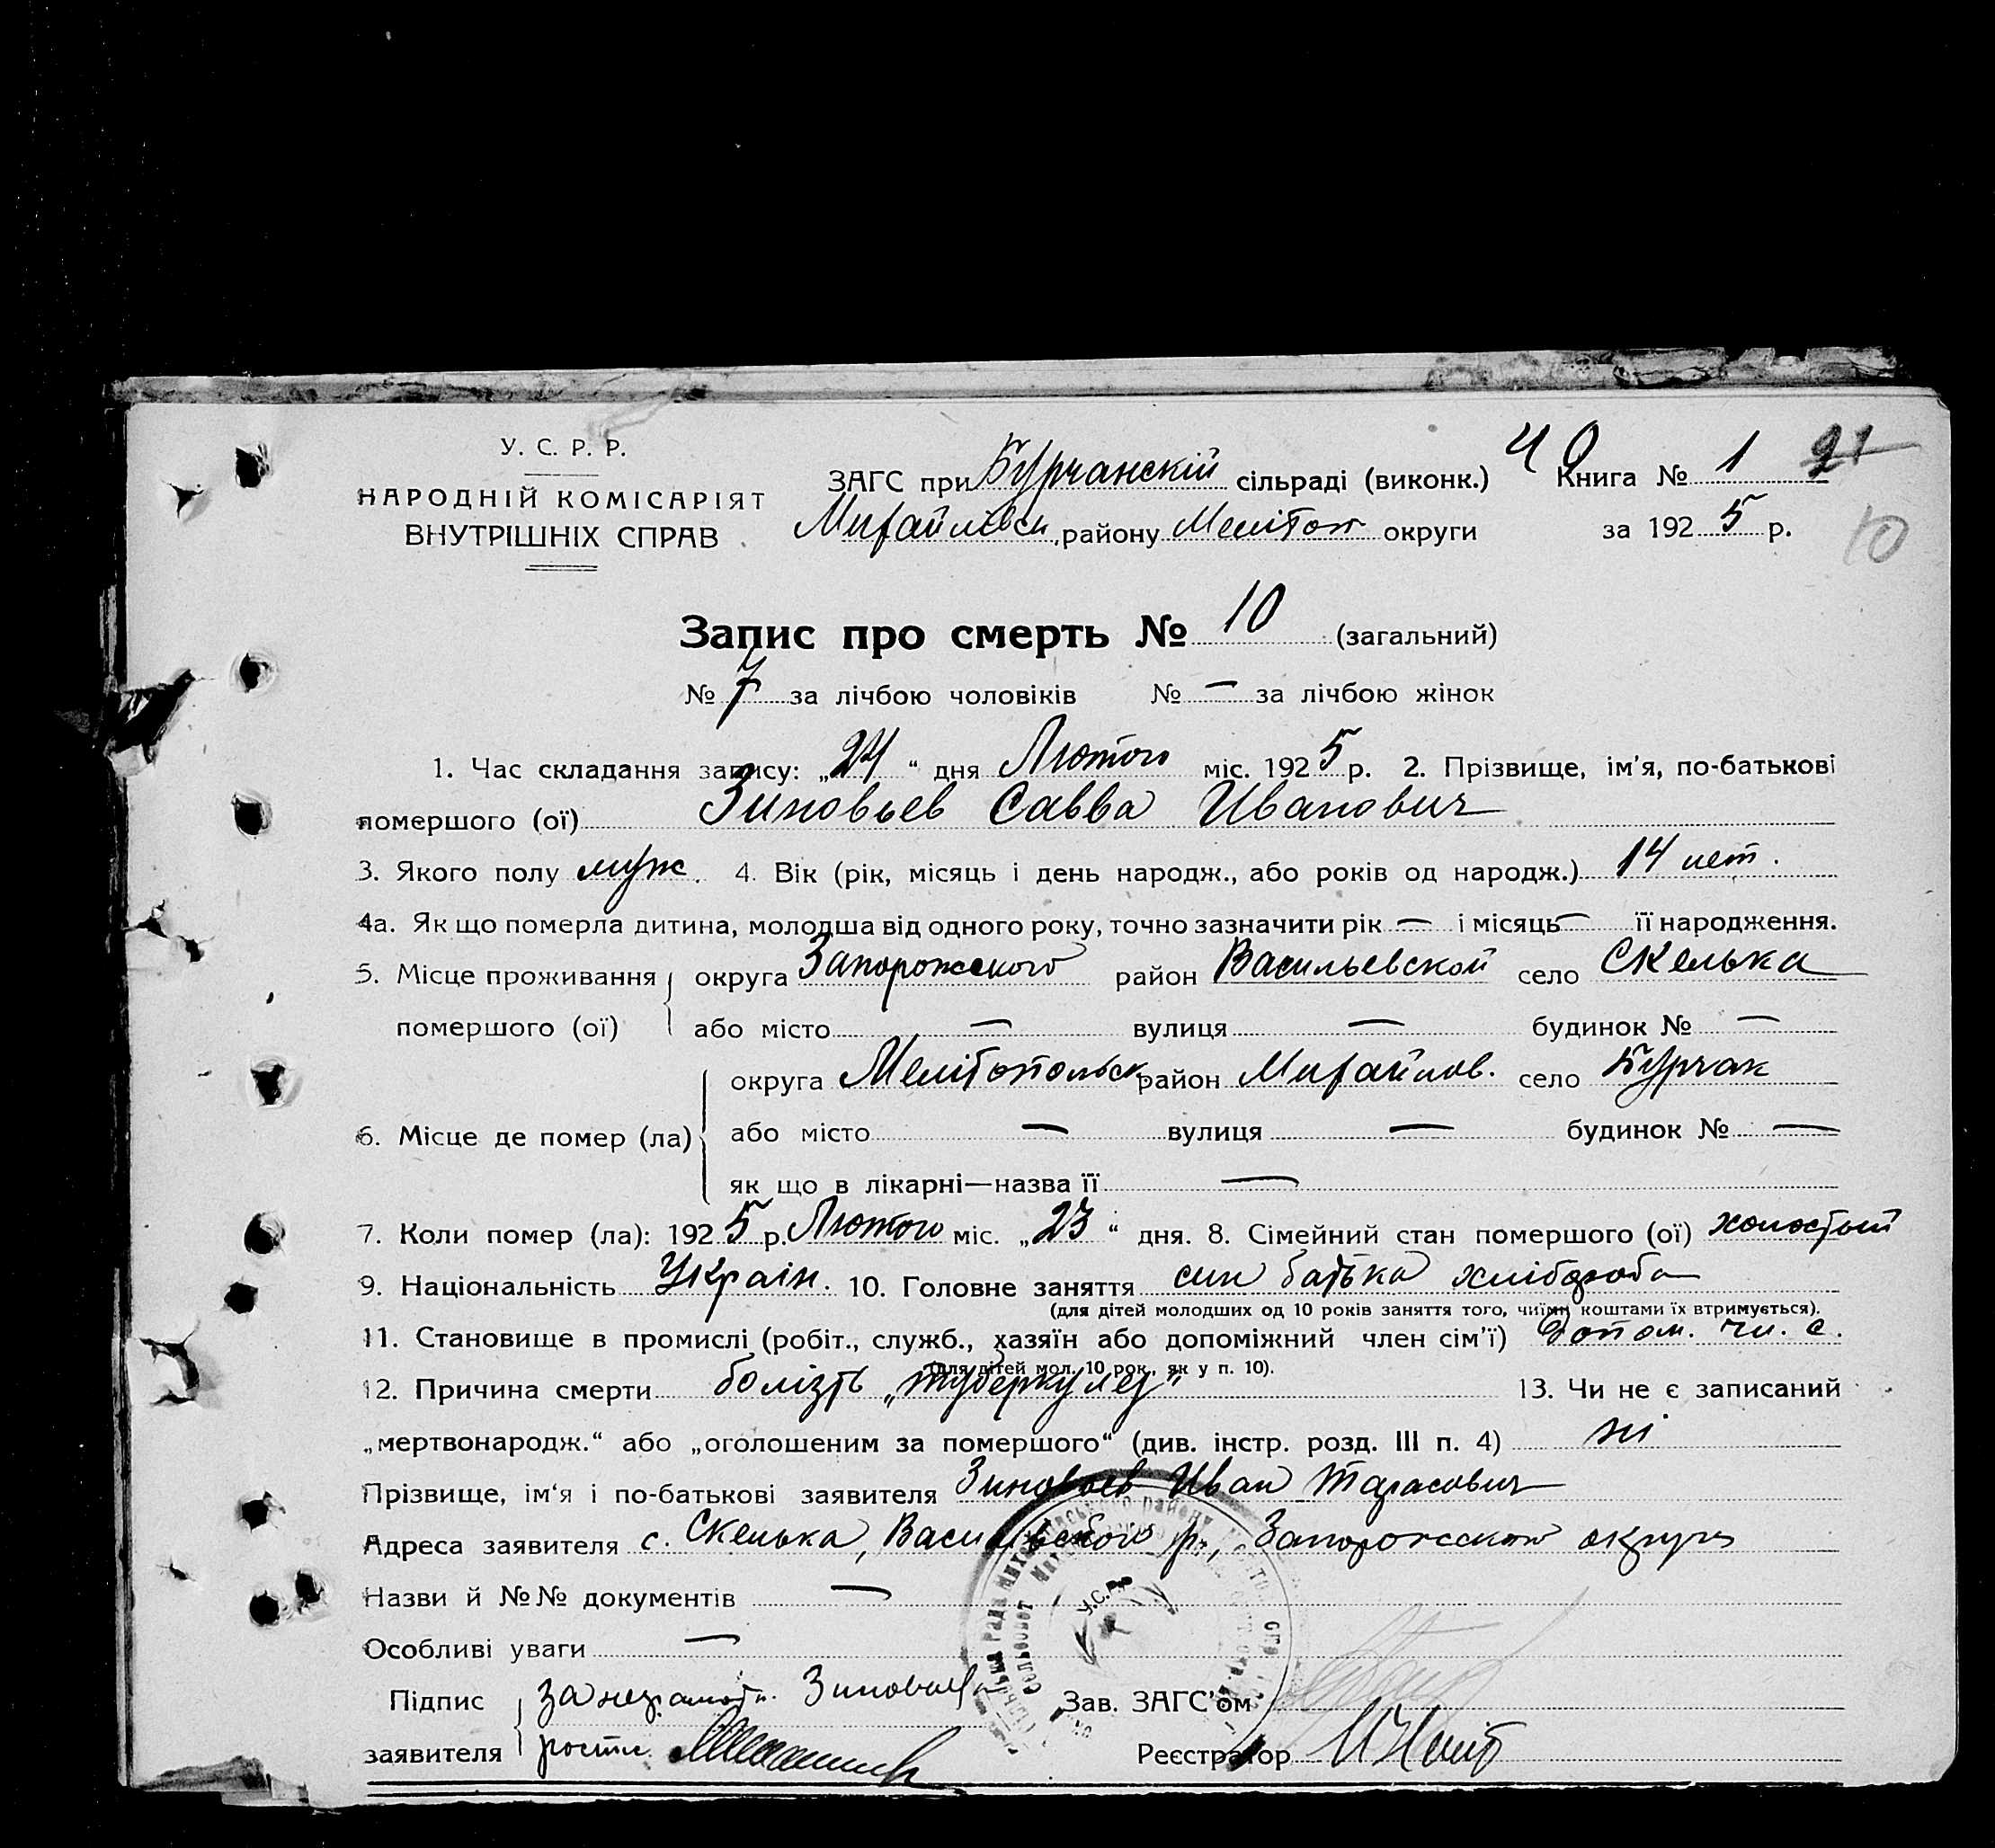 У. С. Р. Р.
НАРОДНІЙ КОМІСАРІЯТ
ВНУТРІШНІХ СПРАВ
ЗАГС при Бурчанскій сільраді (виконк.) 40 Книга № 1 21
Михайлівск. району Мелітоп округи за 1925 р. 10
Запис про смерть № 10 (загальний)
№ 7 за лічбою чоловіків № — за лічбою жінок
1. Час складання запису: „24“ дня Лютого міс. 1925 р. 2. Прізвище, ім’я, по-батькові
помершого (ої) Зиновьев Савва Иванович
3. Якого полу муж. 4. Вік (рік, місяць і день народж., або років од народж.) 14 лет.
4а. Як що померла дитина, молодша від одного року, точно зазначити рік — і місяць — її народження.
5. Місце проживання округа Запорожского район Васильевской село Скелька
помершого (ої) або місто — вулиця — будинок № —
округа Мелітопольск район Михайлов. село Бурчак
6. Місце де помер (ла) або місто — вулиця — будинок № —
як що в лікарні—назва її —
7. Коли помер (ла): 1925 р. Лютого міс. „23“ дня. 8. Сімейний стан помершого (ої) холостый
9. Національність Украін. 10. Головне заняття син батька хлібороба
(для дітей молодших од 10 років заняття того, чиїми коштами їх втримується).
11. Становище в промислі (робіт., служб., хазяїн або допоміжний член сім’ї) допом. чл. с.
(для дітей мол. 10 рок., як у п. 10).
12. Причина смерти болізть „туберкулез“ 13. Чи не є записаний
„мертвонародж.“ або „оголошеним за помершого“ (див. інстр. розд. III п. 4) ні
Прізвище, ім‘я і по-батькові заявителя Зиновьев Иван Тарасович
Адреса заявителя с. Скелька, Васильевского р., Запорожской округи
Назви й №№ документів —
Особливі уваги —
У.С.Р.Р
Підпис за неграмотн. Зиновьева Зав. ЗАГС’ом
заявителя роспис. Реєстратор